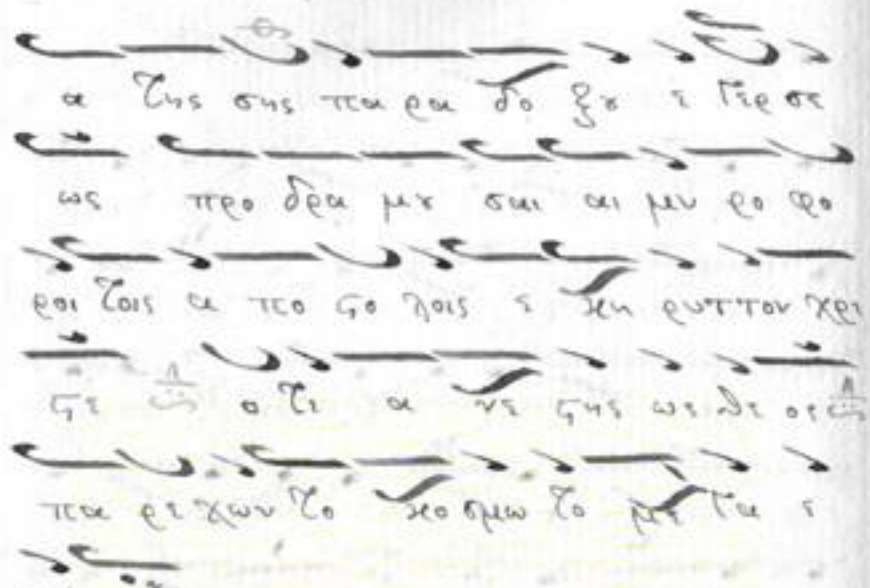 α της σης πα ρα δο ξȣ ε γερ σε
ως προ δρα μȣ σαι αι μυ ρο φο
ροι τοις α πο ϛο λοις ε κη ρυττον χρι
ϛε ο τι α νε ϛης ως θε ος
πα ρε χων το κο σμω το με γα ε